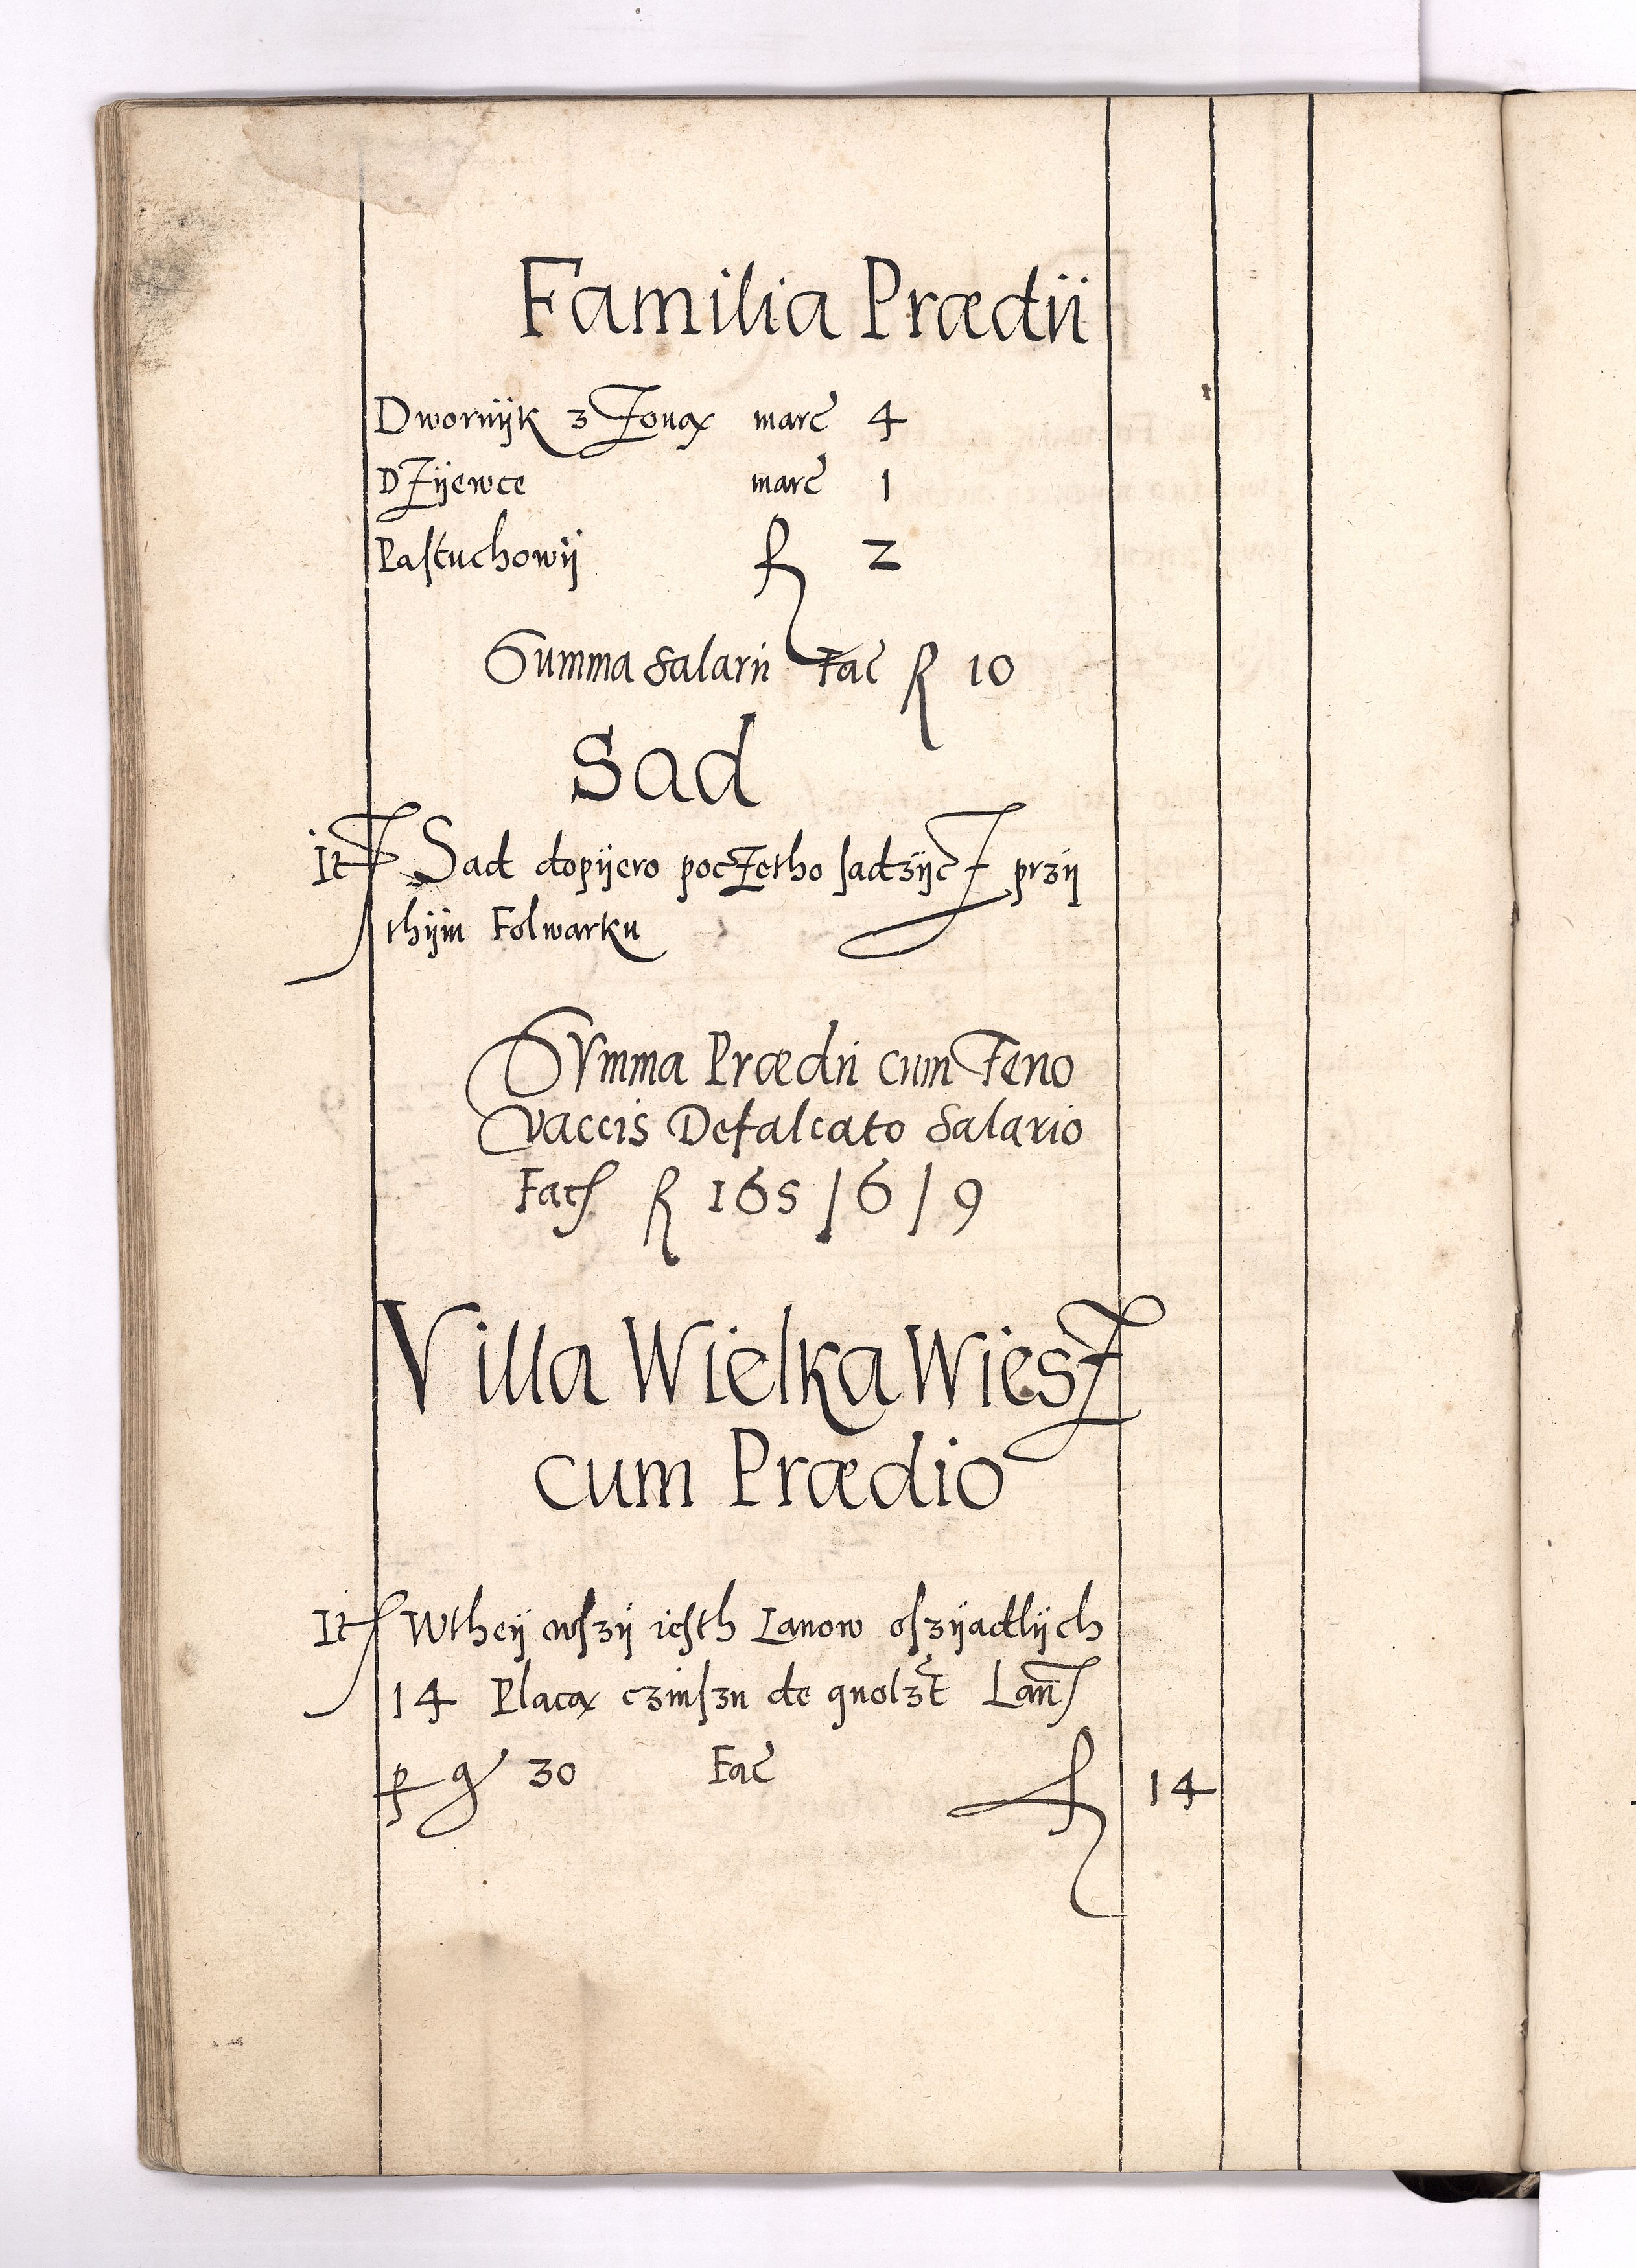 Familia Prædii
Dwornijk z Zoną marc 4
Dzijewce marc 1
Pastuchowij fl 2
Summa Salarii Fac fl 10
Sad
It Sad dopijero poczetho sadzijcz przij
thijm Folwarku
Summa Prædii cum Feno
Vaccis Defalcato Salario
Fac fl 165 / 6 / 9
Villa Wielka Wiesz
cum Prædio
It Wtheij wszij iesth Lanow oszijadlijch
14 Placą czinszu de quolzt Lan
p g 30 Fac fl 14